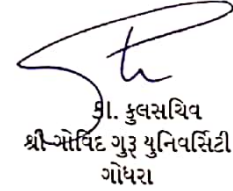 કા. કુલસચિવ
શ્રી ગોવિંદ ગુરૂ યુનિવર્સિટી
ગોધરા